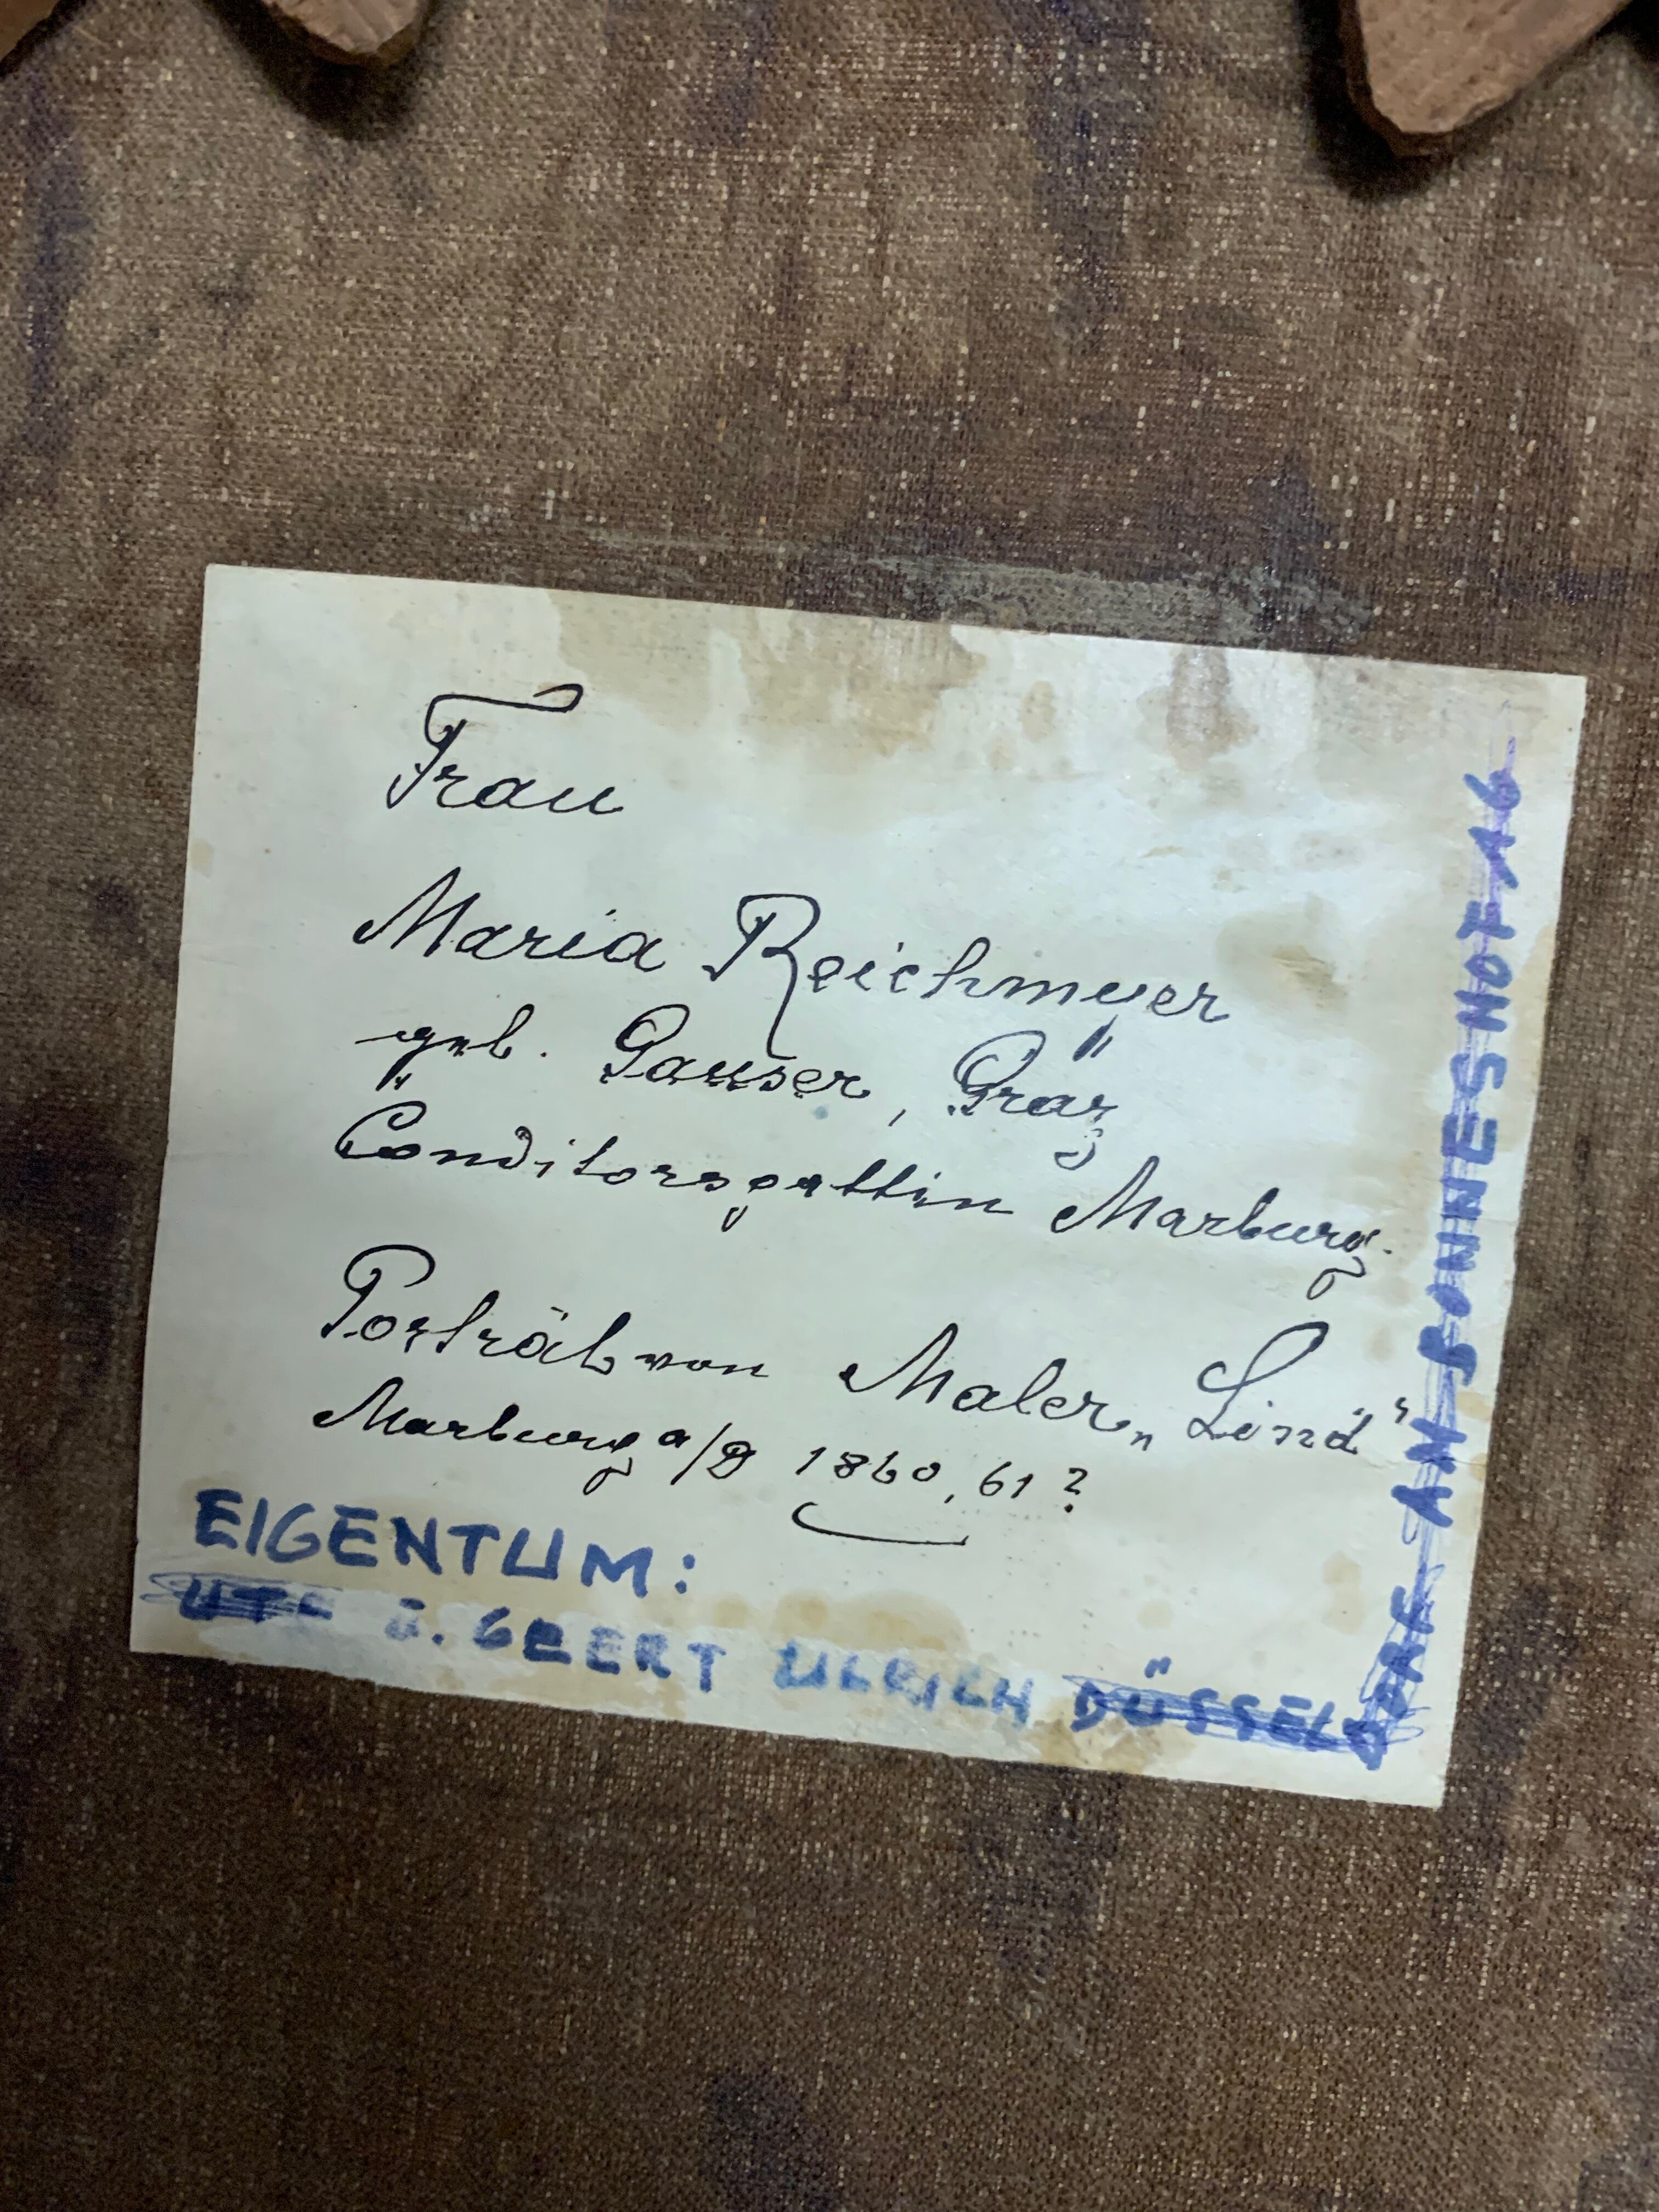 Frau
Maria Reichmeyer
geb. Gauser, Graz
Conditorsgattin Marburg.
Porträt von Maler „Lind"
Marburg a/D 1860, 61?
EIGENTUM:
UTE U. GEERT ULRICH DÜSSELDORF
AN BONNESHOF A6